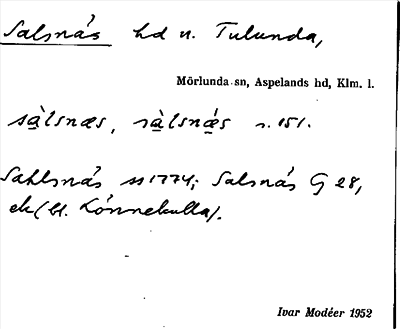 Salsnäs hd u. Tulunda,
Mörlunda sn, Aspelands hd, Klm. l.
sàlsnæs, sàlsnǽs s. 151.
Sahlsnäs 1774; Salsnäs G 28,
ek (bl. Lönnekulla).
Ivar Modéer 1952